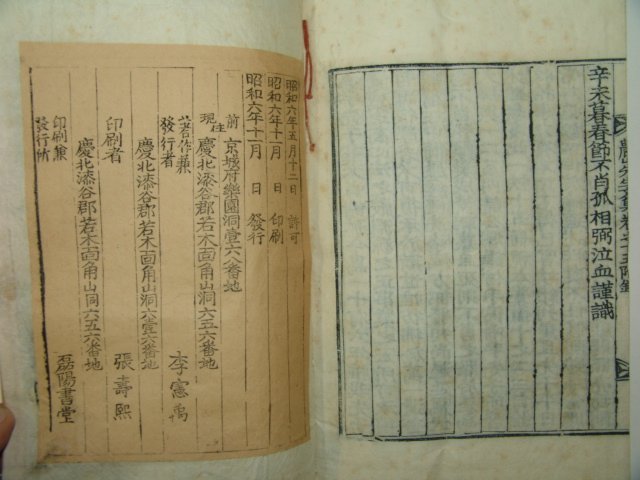 辛未暮春節不肖孤相弼泣血謹識
先生文集卷之十五附錄
昭和六年五月十二日 許可
昭和六年十一月 日 印刷
昭和六年十二月 日 發行
前 京城府樂園洞壹六八番地
現住 慶北漆谷郡若木面角山洞六五六番地
著作兼
發行者 李憲禹
慶北漆谷郡若木面角山洞六壹六番地
印刷者 張壽熙
慶北漆谷郡若木面角山洞六五六番地
印刷兼
發行所 磊陽書堂